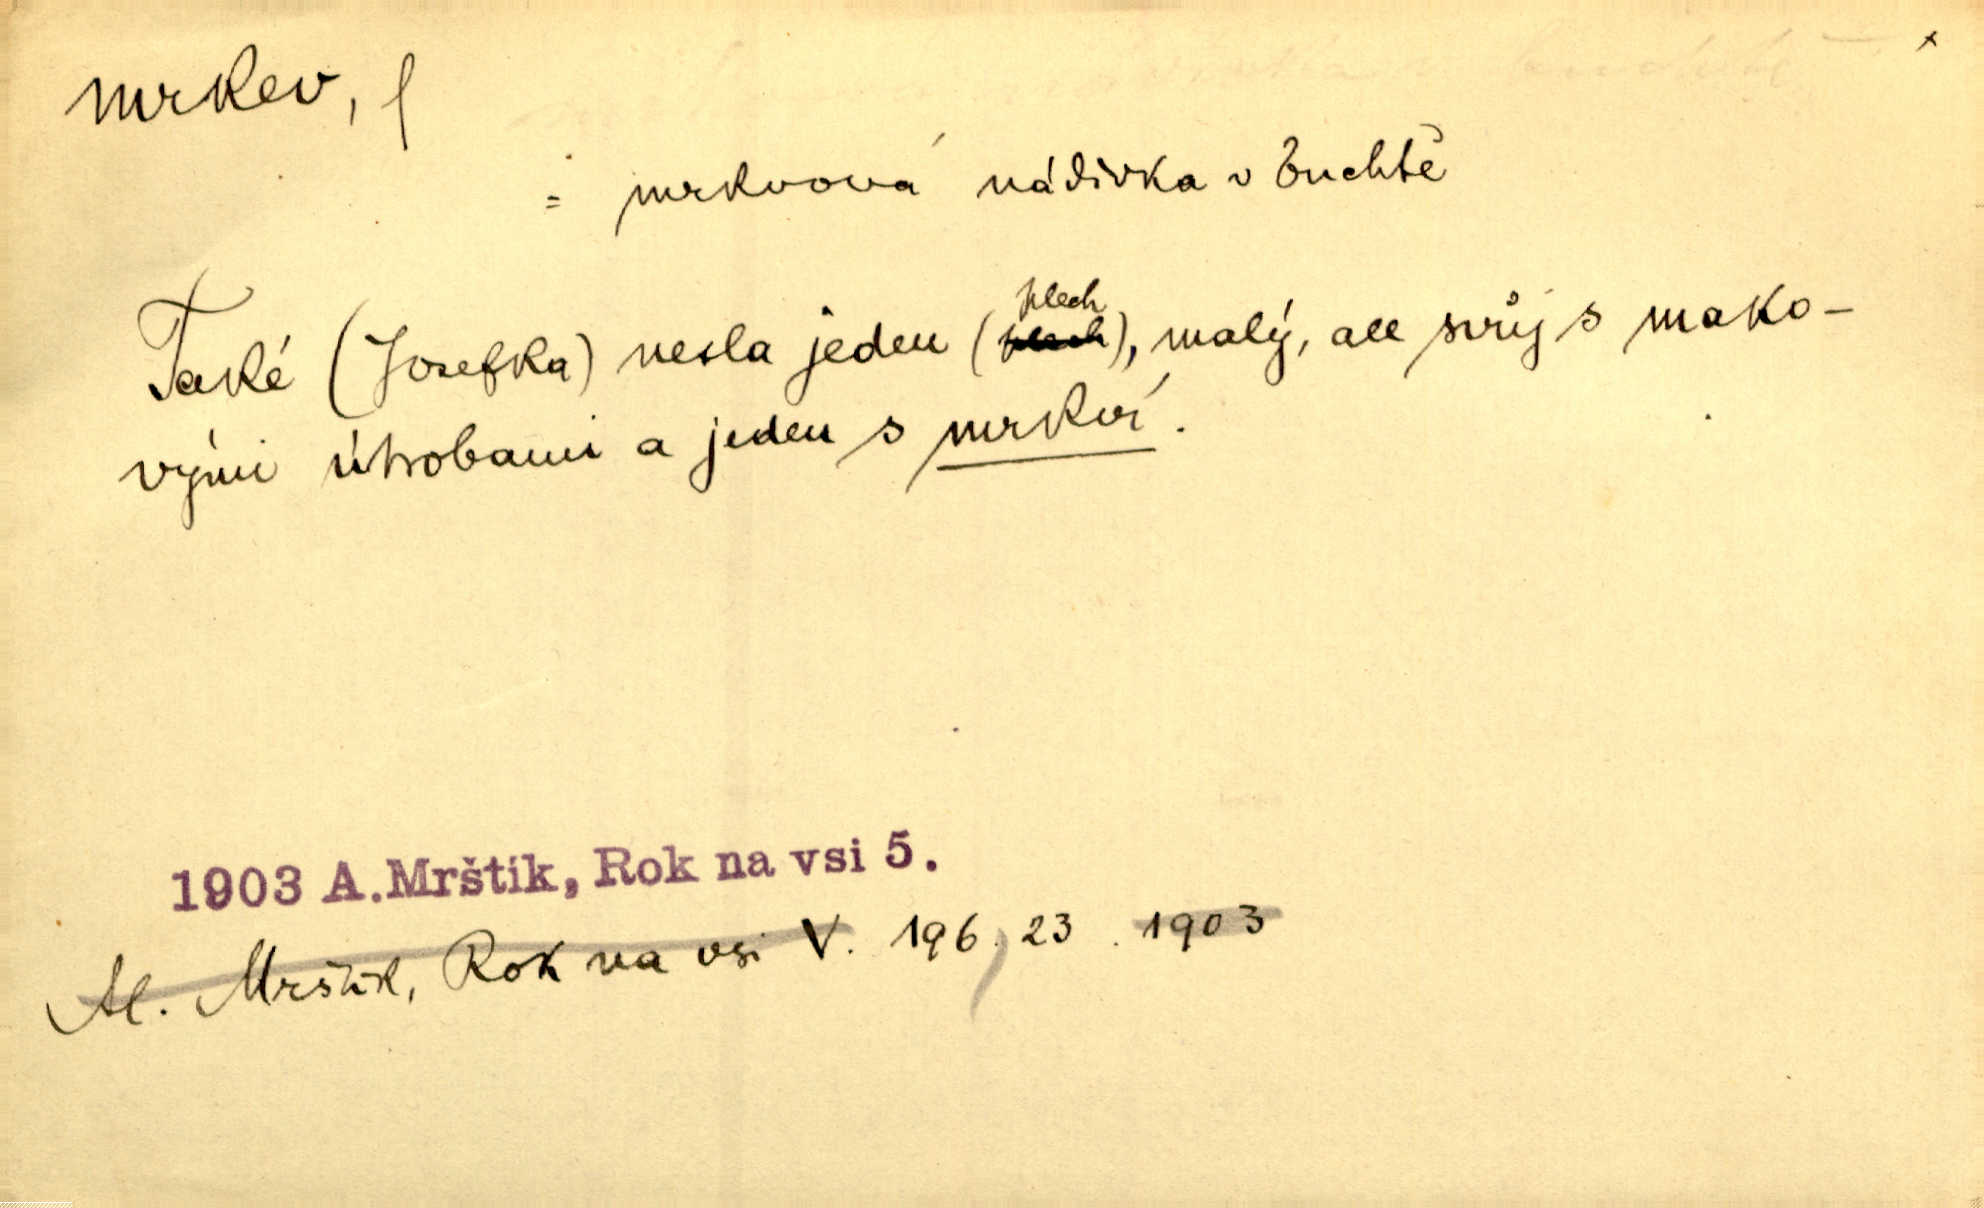 mrkev, f
x
= mrkvová nádivka v buchtě
plech
Také (Josefka) nesla jeden (plech), malý, ale svůj s mako-
vými útrobami a jeden s mrkví.
1903 A.Mrštík, Rok na vsi 5.
Al. Mrštík, Rok na vsi V. 196, 23. 1903